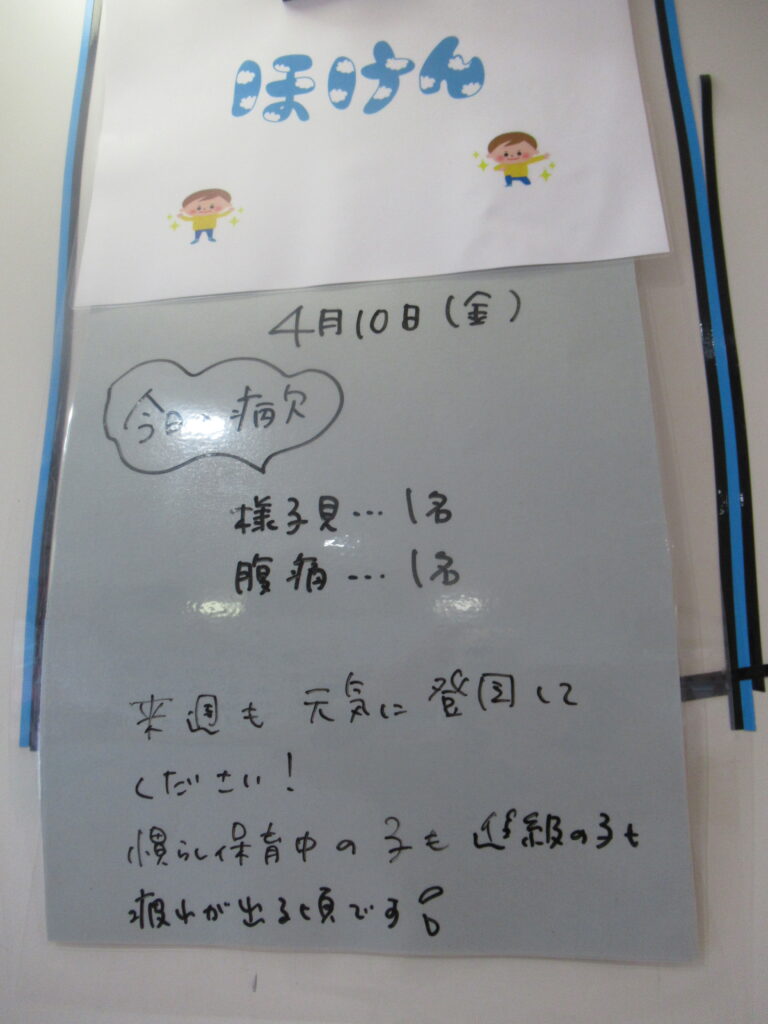 ほけん
4月10日(金)
今日の病欠
様子見…1名
腹痛…1名
来週も元気に登園して
ください!
慣らし保育中の子も進級の子も
疲れが出る頃です!